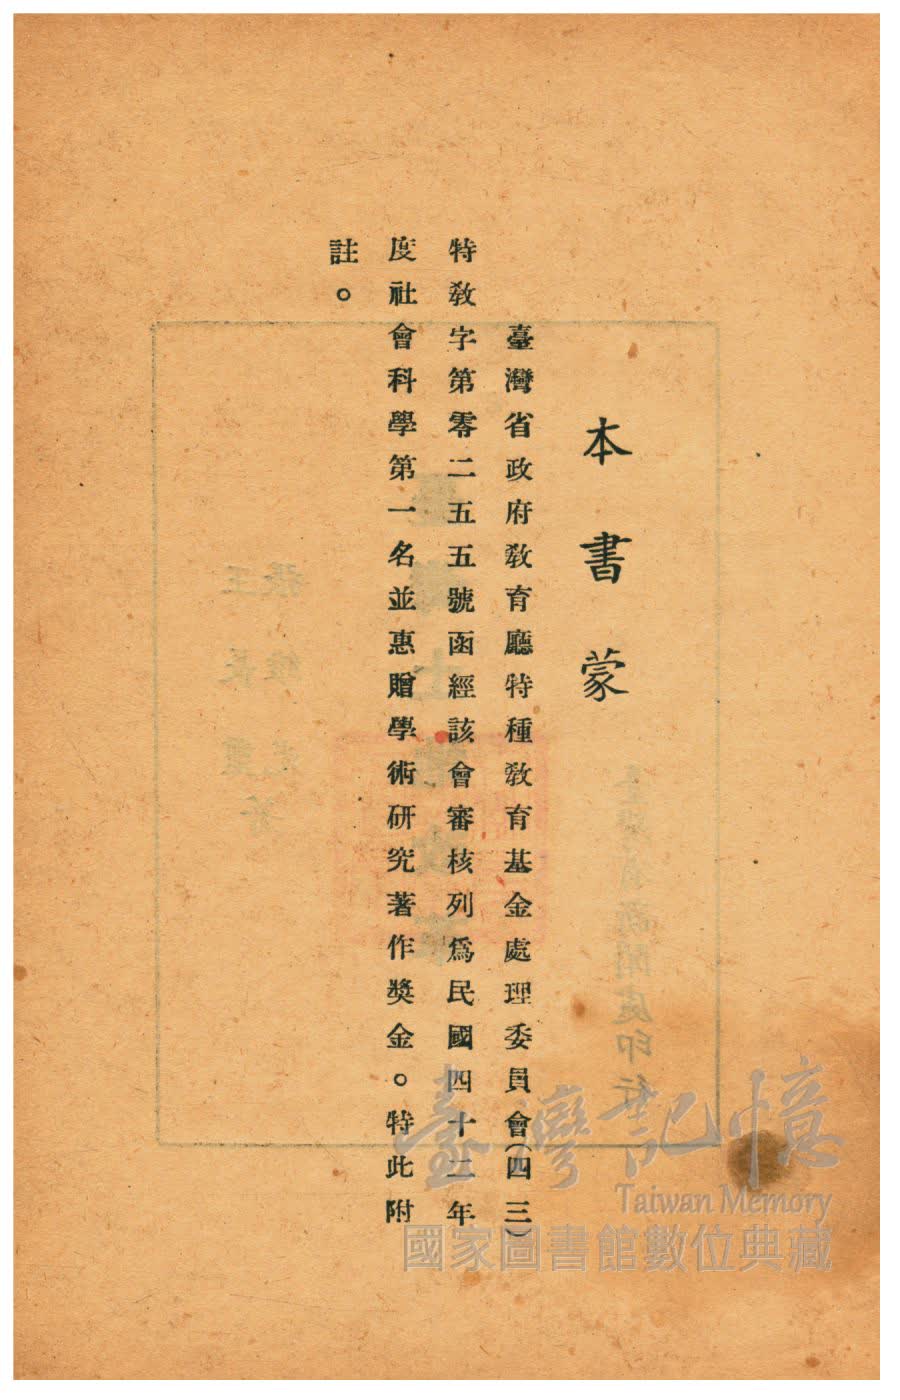 本書蒙
臺灣省政府教育廳特種教育基金處理委員會(四三)
特教字第零二五五號函經該會審核列爲民國四十二年
度社會科學第一名並惠贈學術研究著作獎金。特此附
註。
臺灣記憶
Taiwan Memory
國家圖書館數位典藏